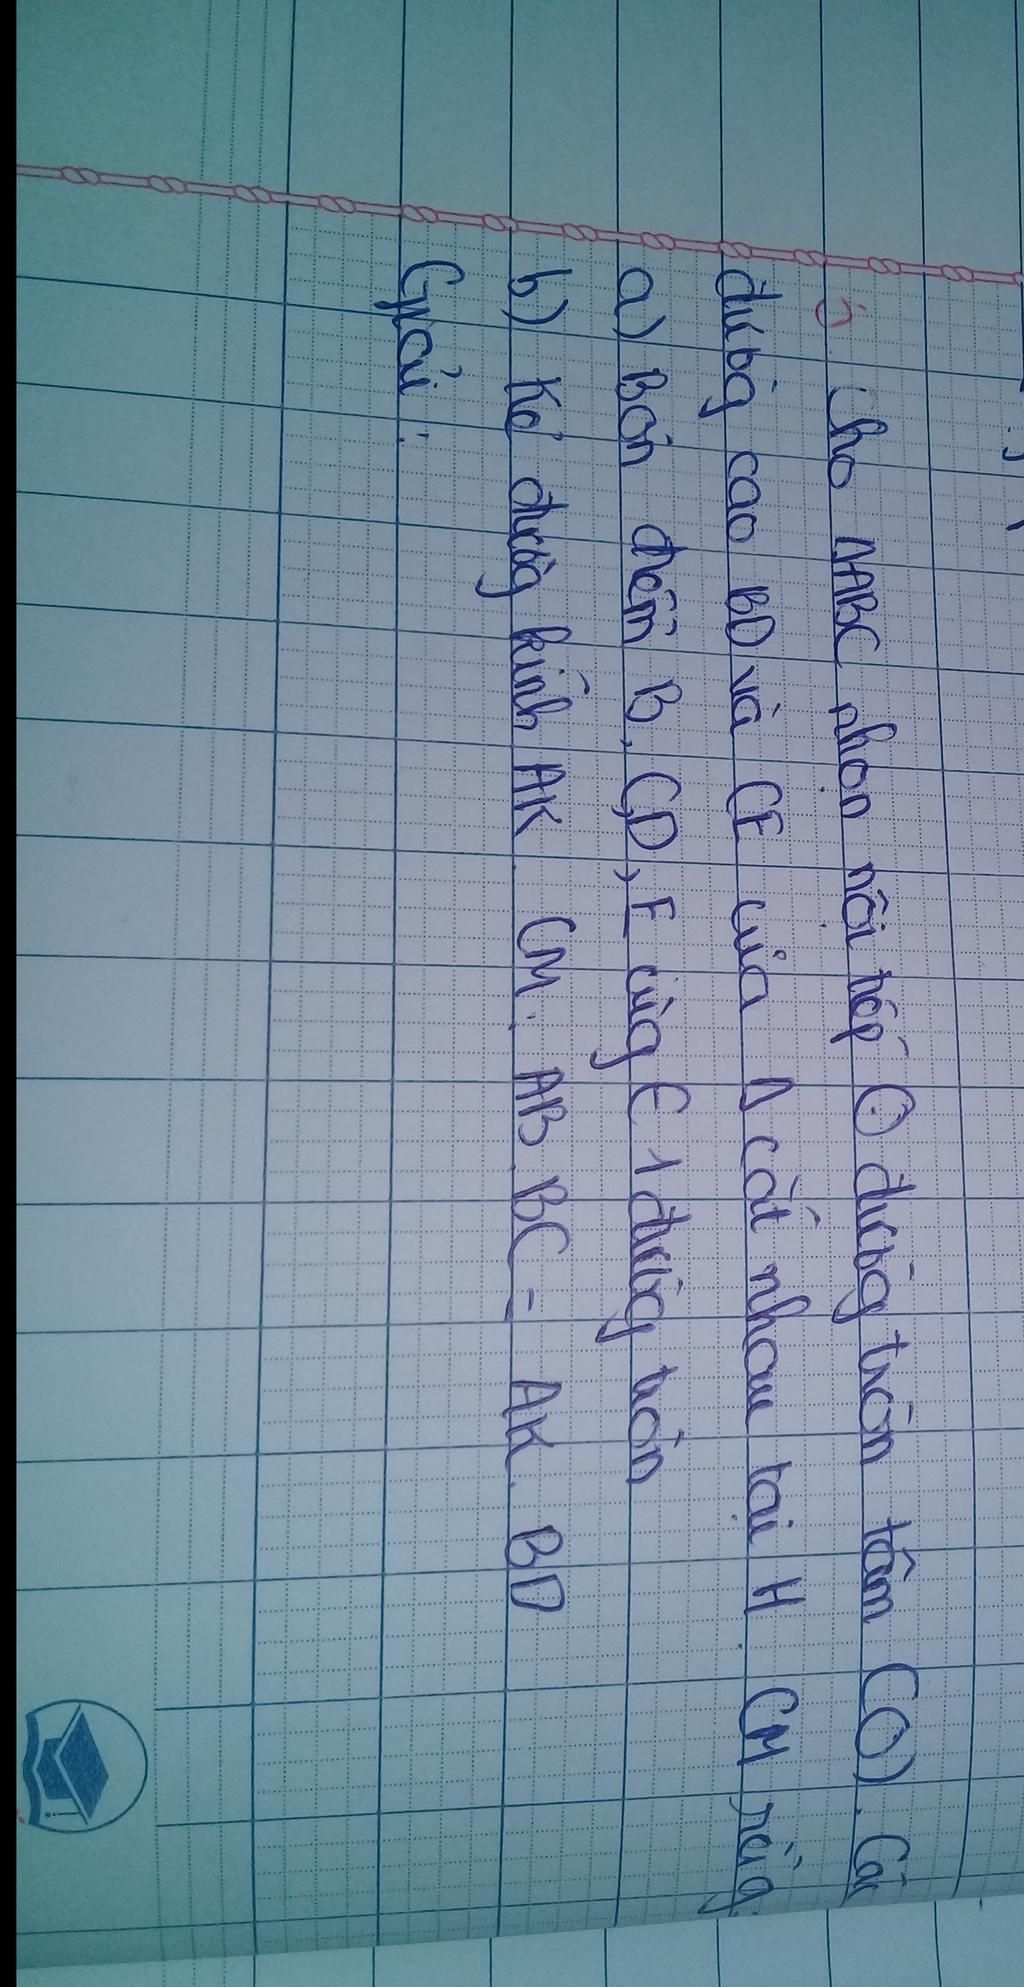 Cho ΔABC nhọn nội tiếp O đường tròn tâm (O). Các
đường cao BD và CE của Δ cắt nhau tại H. CM rằng
a) Bốn điểm B, C, D, E cùng ∈ 1 đường tròn
b) Kẻ đường kính AK. CM: AB.BC = AK.BD
Giải: